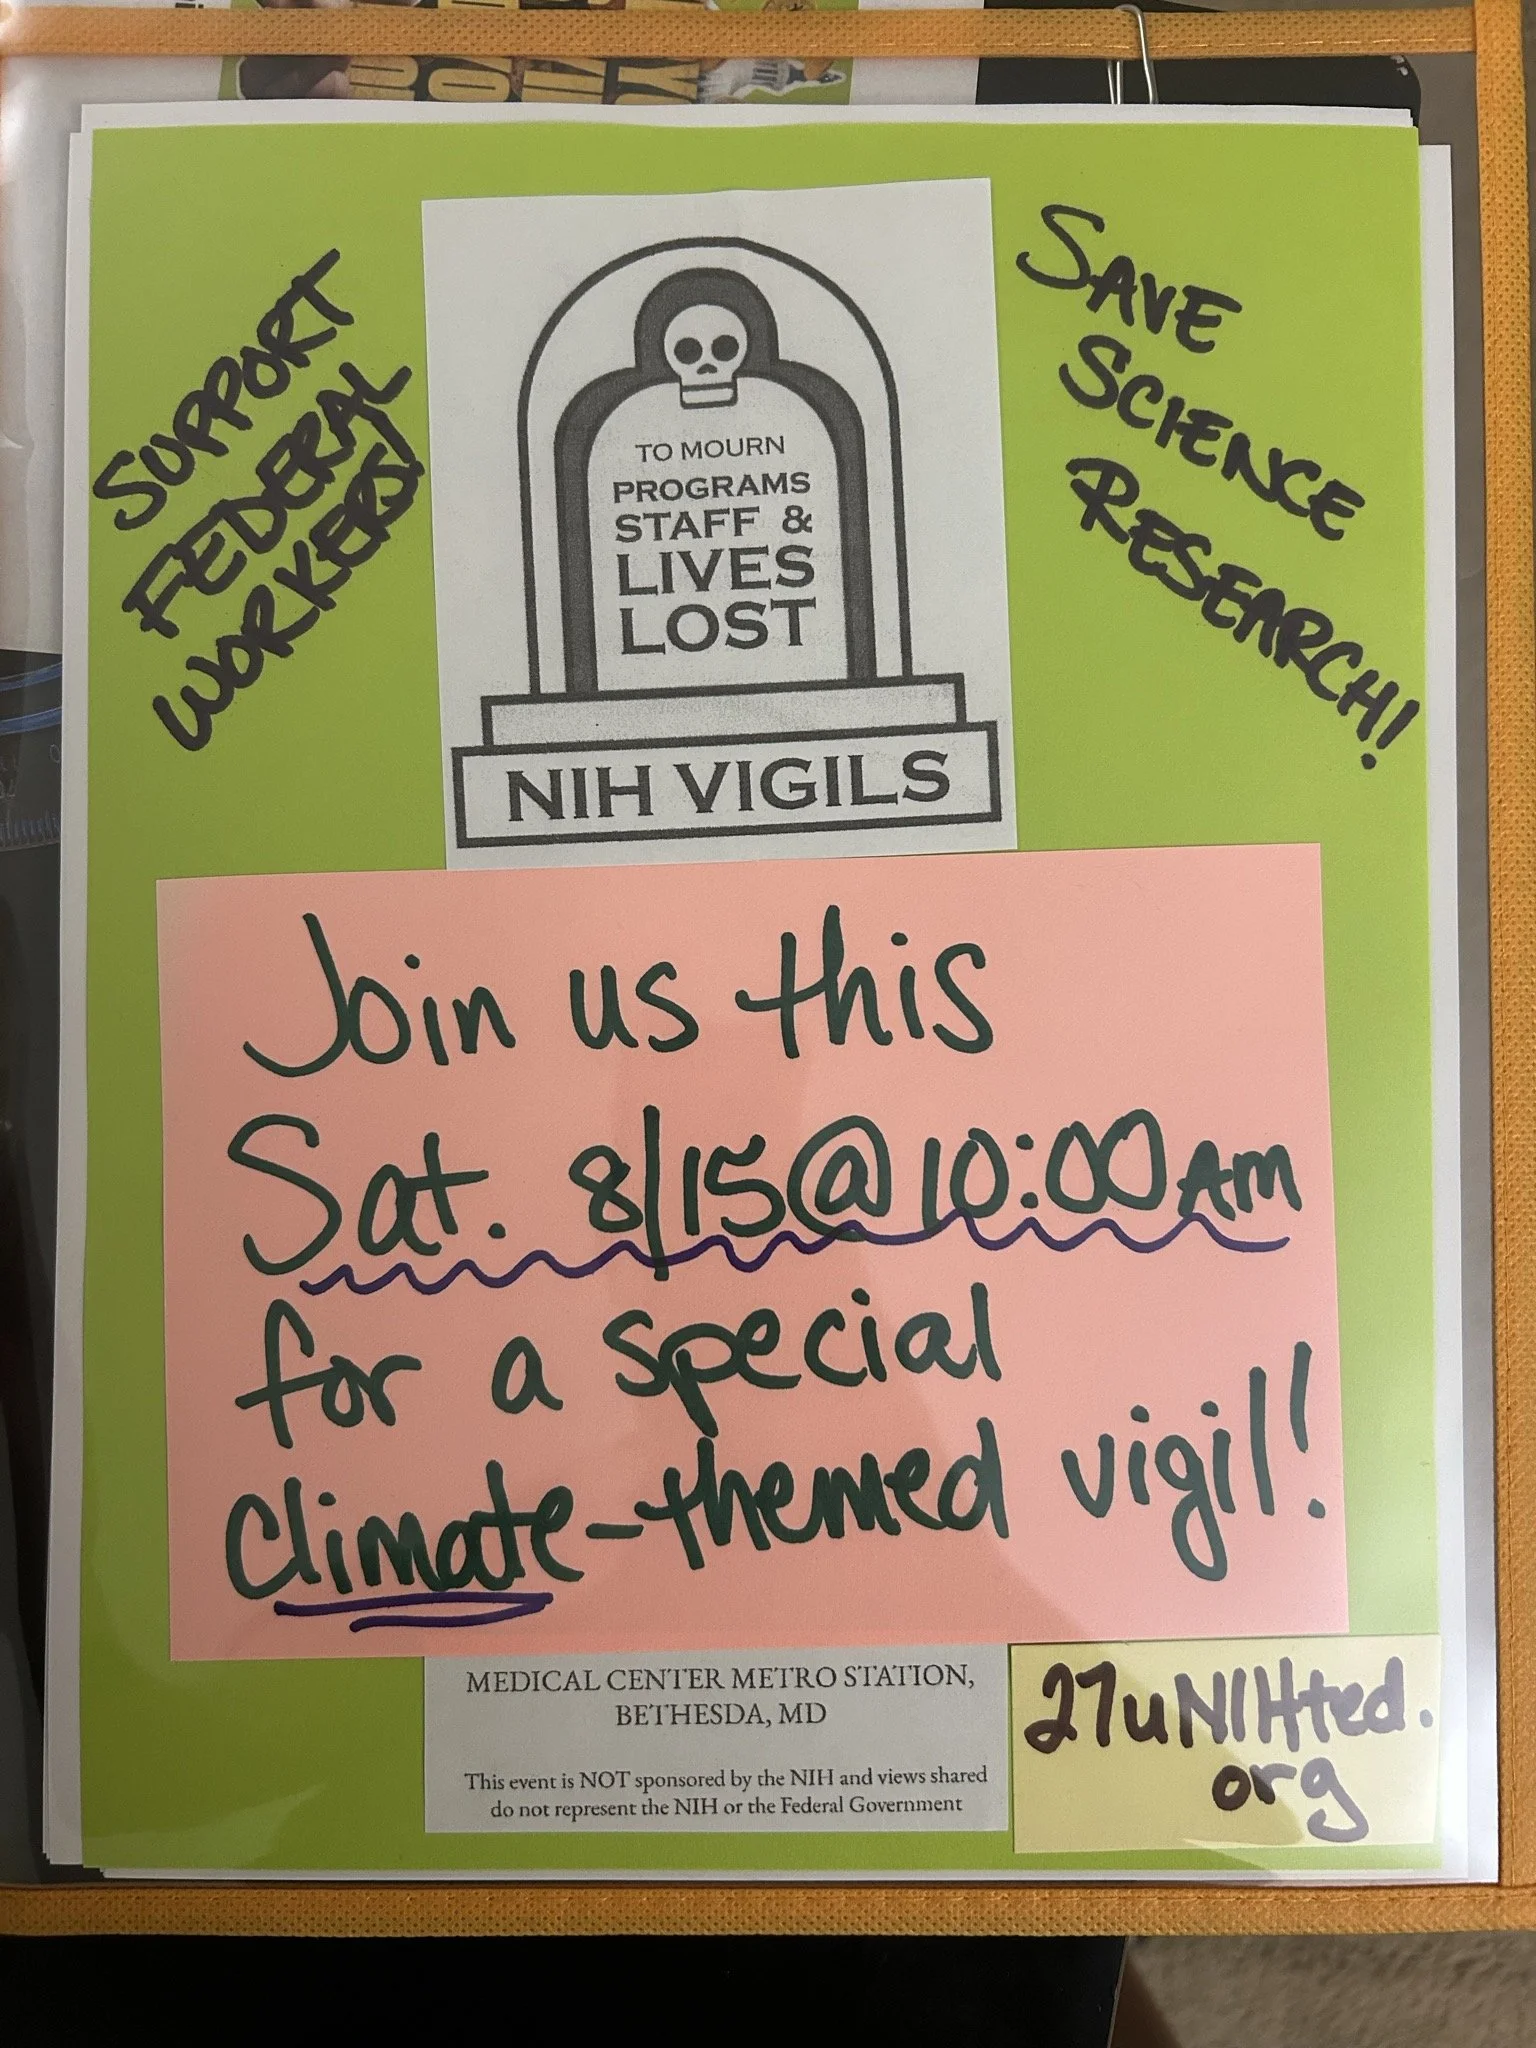 SUPPORT
FEDERAL
WORKERS!
SAVE
SCIENCE
RESEARCH!
TO MOURN
PROGRAMS
STAFF &
LIVES
LOST
NIH VIGILS
Join us this
Sat. 8/15@10:00AM
for a special
climate-themed vigil!
MEDICAL CENTER METRO STATION,
BETHESDA, MD
This event is NOT sponsored by the NIH and views shared
do not represent the NIH or the Federal Government
27uNIHted.
org